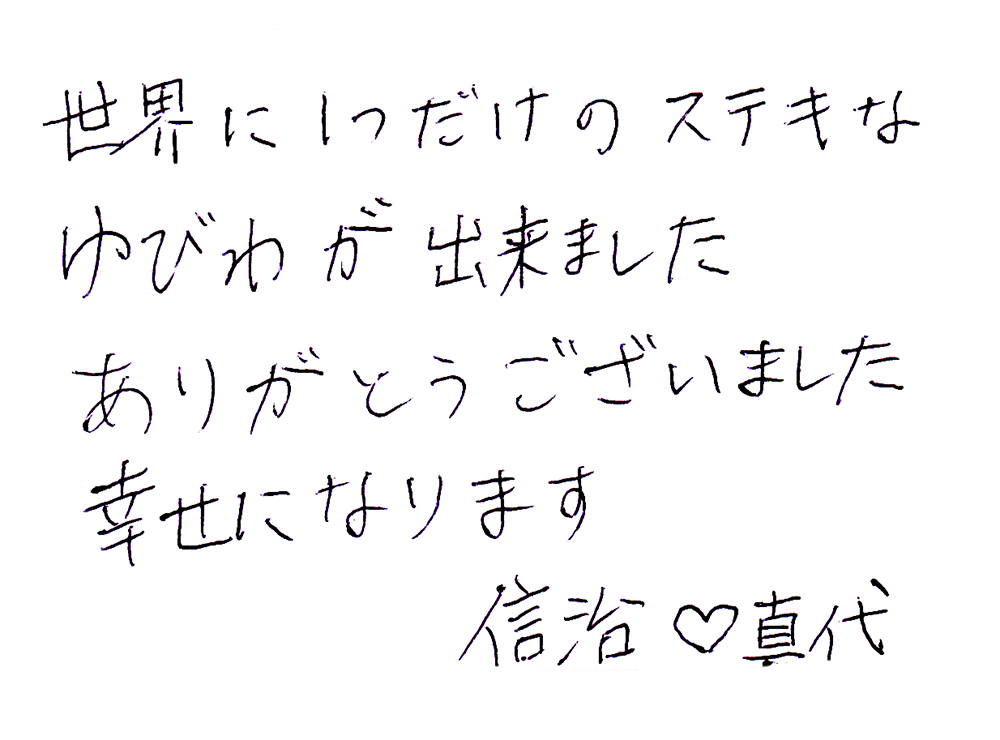 世界に1つだけのステキな
ゆびわが出来ました
ありがとうございました
幸せになります
信治♡真代